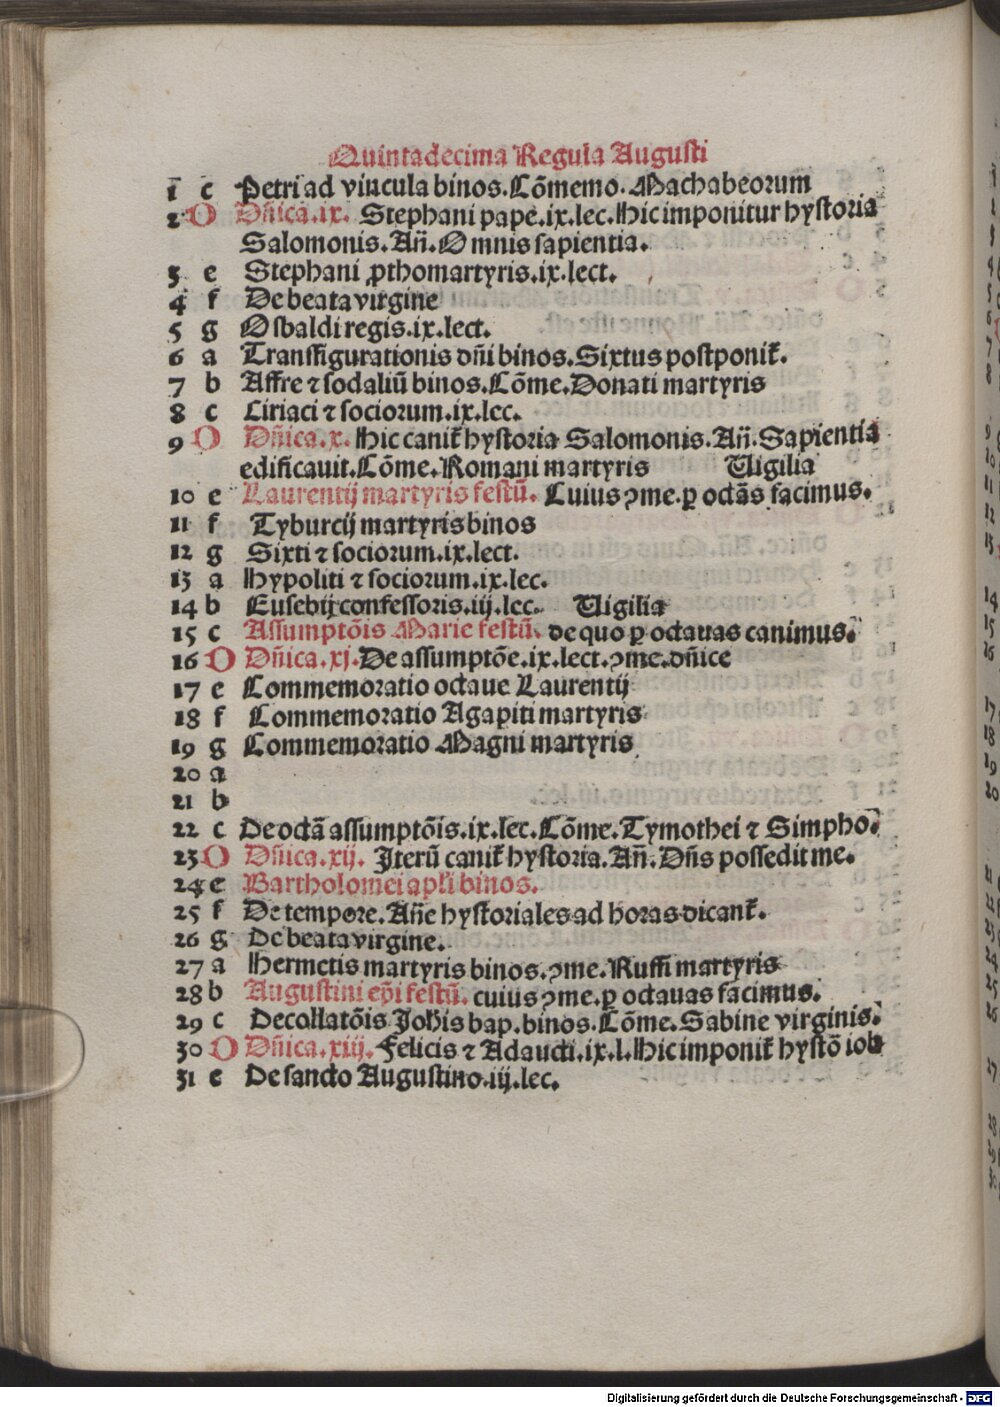 Quintadecima Regula Augusti
1 c Petri ad vincula binos. Cōmemo. Machabeorum
2 D Dn̄ica.ix. Stephani pape.ix.lec. Hic imponitur hystoria
Salomonis. Añ. Omnis sapientia.
3 e Stephani ꝓthomartyris.ix.lect.
4 f De beata virgine
5 g Osbaldi regis.ix.lect.
6 a Transfigurationis dn̄i binos. Sixtus postponit᷑.
7 b Affre ⁊ sodaliū binos. Cōme. Donati martyris
8 c Ciriaci ⁊ sociorum.ix.lec.
9 D Dn̄ica.x. Hic canit᷑ hystoria Salomonis. Añ. Sapientia
edificauit. Cōme. Romani martyris Vigilia
10 e Laurentij martyris festū. Cuius ꝯme. ꝑ octās facimus.
11 f Tyburcij martyris binos
12 g Sixti ⁊ sociorum.ix.lect.
13 a Hypoliti ⁊ sociorum.ix.lec.
14 b Eusebij confessoris.iij.lec. Vigilia
15 c Assumptōis Marie festū. de quo ꝑ octauas canimus.
16 D Dn̄ica.xj. De assumptōe.ix.lect. ꝯme. dn̄ice
17 e Commemoratio octaue Laurentij
18 f Commemoratio Agapiti martyris
19 g Commemoratio Magni martyris
20 a
21 b
22 c De octā assumptōis.ix.lec. Cōme. Tymothei ⁊ Simpho.
23 D Dn̄ica.xij. Iterū canit᷑ hystoria. Añ. Dn̄s possedit me.
24 e Bartholomei apl̄i binos.
25 f De tempore. Añe hystoriales ad horas dicant᷑.
26 g De beata virgine.
27 a Hermetis martyris binos. ꝯme. Ruffi martyris
28 b Augustini ep̄i festū. cuius ꝯme. ꝑ octauas facimus.
29 c Decollatōis Joh̄is bap. binos. Cōme. Sabine virginis.
30 D Dn̄ica.xiij. Felicis ⁊ Adaucti.ix.l. Hic imponit᷑ hystō iob
31 e De sancto Augustino.iij.lec.
Digitalisierung gefördert durch die Deutsche Forschungsgemeinschaft - DFG